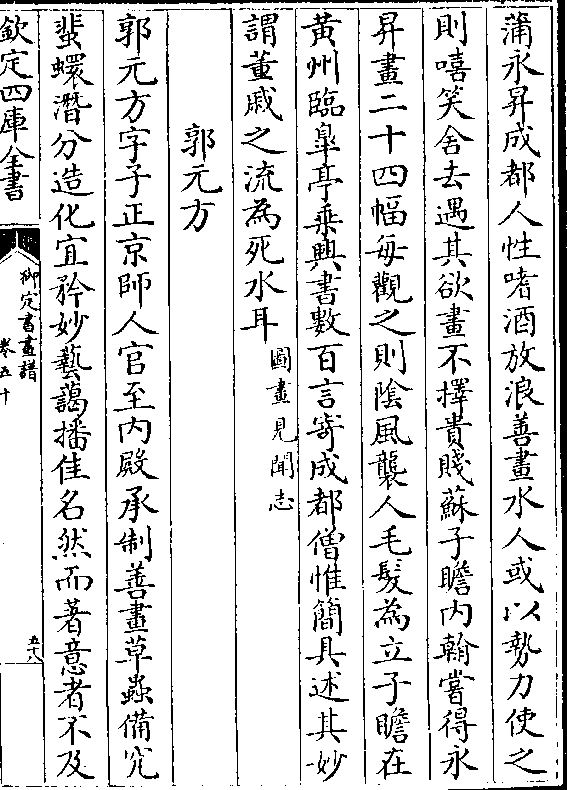 蒲永昇成都人性嗜酒放浪善畫水人或以勢力使之
則嘻笑舍去遇其欲畫不擇貴賤蘇子瞻内翰嘗得永
昇畫二十四幅每觀之則陰風襲人毛髮為立子瞻在
黄州臨皐亭乗興書數百言寄成都僧惟簡具述其妙
謂董戚之流為死水耳圖畫見聞志
郭元方
郭元方字子正京師人官至内殿承制善畫草蟲備究
蜚蠉潛分造化宜矜妙藝藹播佳名然而著意者不及
欽定四庫全書
御定書畫譜
卷五十
五十八